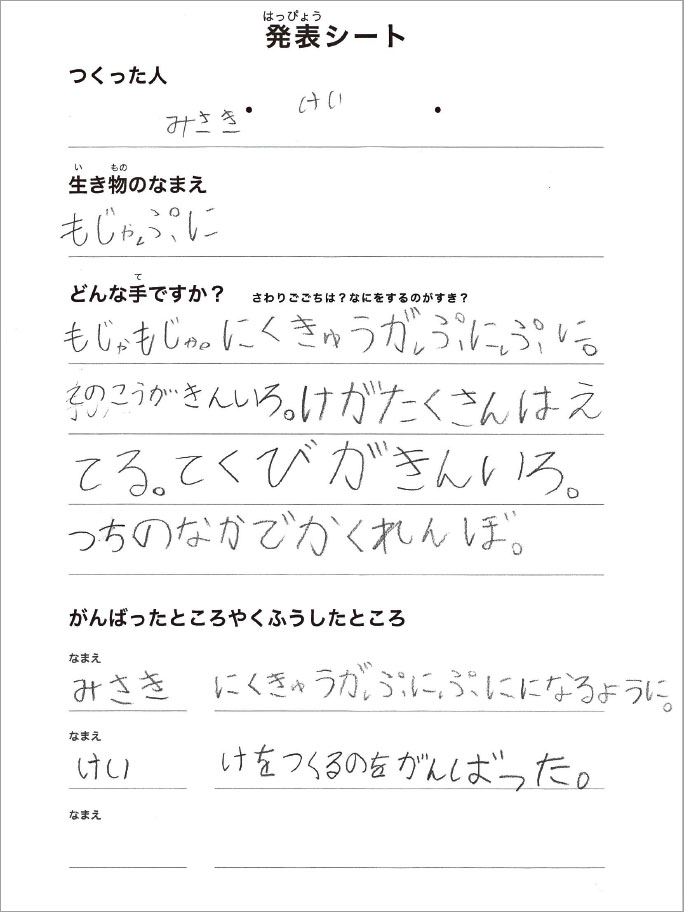 はっぴょう
発表シート
つくった人
みさき・ けい ・
い もの
生き物のなまえ
もじゃぷに
て
どんな手ですか？ さわりごごちは？なにをするのがすき？
もじゃもじゃ。にくきゅうが、ぷに、ぷに。
てのこうがきんいろ。けがたくさんはえ
てる。てくびがきんいろ。
つちのなかでかくれんぼ。
がんばったところやくふうしたところ
なまえ
みさき にくきゅうが、ぷに、ぷにになるように。
なまえ
けい けをつくるのをがんばった。
なまえ